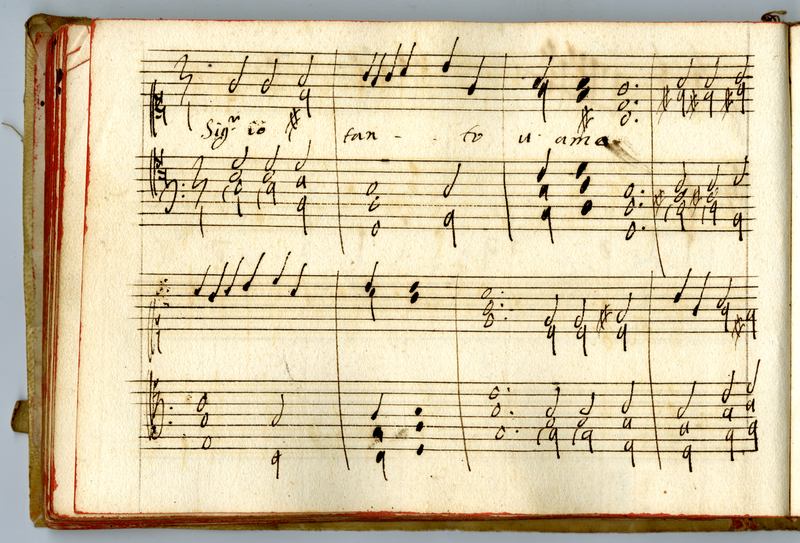 Sig.ra io tan - - to u' amo